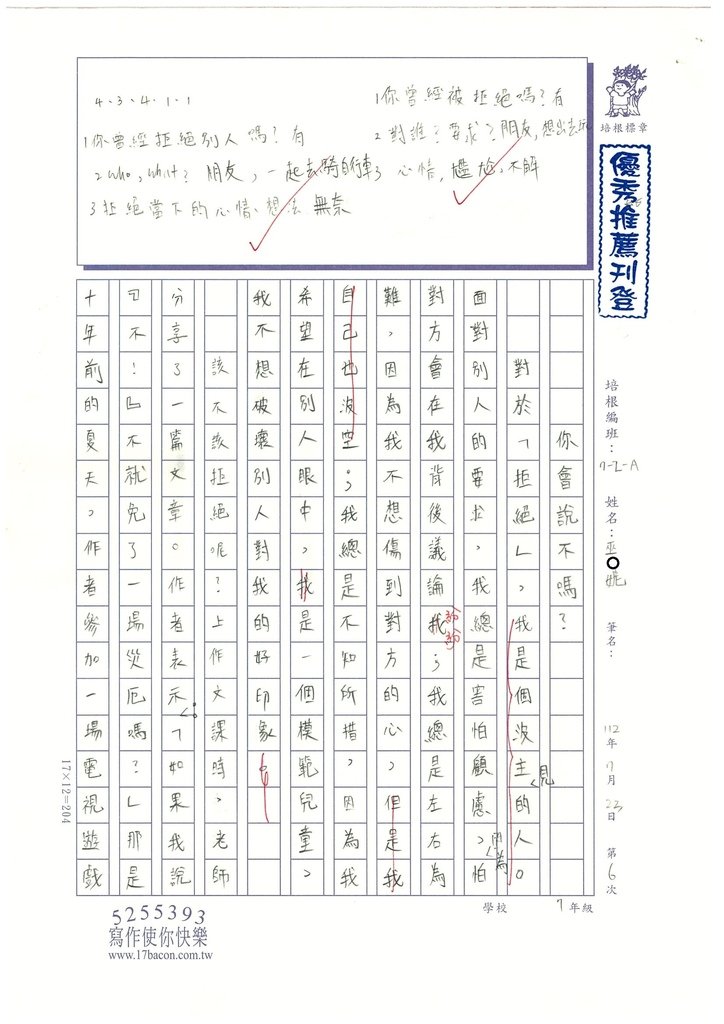 1你曾經被拒絕嗎？有
2 對誰？要求？朋友，想出去玩
3 心情，尷尬，不解
4.3.4.1.1
1你曾經拒絕別人嗎？有
2 who, what? 朋友，一起去騎自行車
3 拒絕當下的心情、想法 無奈
培根標章
優秀推薦刊登
培根編班：7-2-A 姓名：巫 姚 筆名： 112年7月23日 第6次
學校 7年級
你會說不嗎？
對於「拒絕」，我是個沒主見的人。
面對別人的要求，我總是害怕顧慮，因為怕
對方會在我背後議論我紛紛；我總是左右為
難，因為我不想傷到對方的心，但是我
自己也沒空；我總是不知所措，因為我
希望在別人眼中，我是一個模範兒童，
我不想破壞別人對我的好印象
該不該拒絕呢？上作文課時，老師
分享了一篇文章。作者表示：「如果我說
『不！』不就免了一場災厄嗎？」那是
十年前的夏天，作者參加一場電視遊戲
17×12=204
5255393
寫作使你快樂
www.17bacon.com.tw